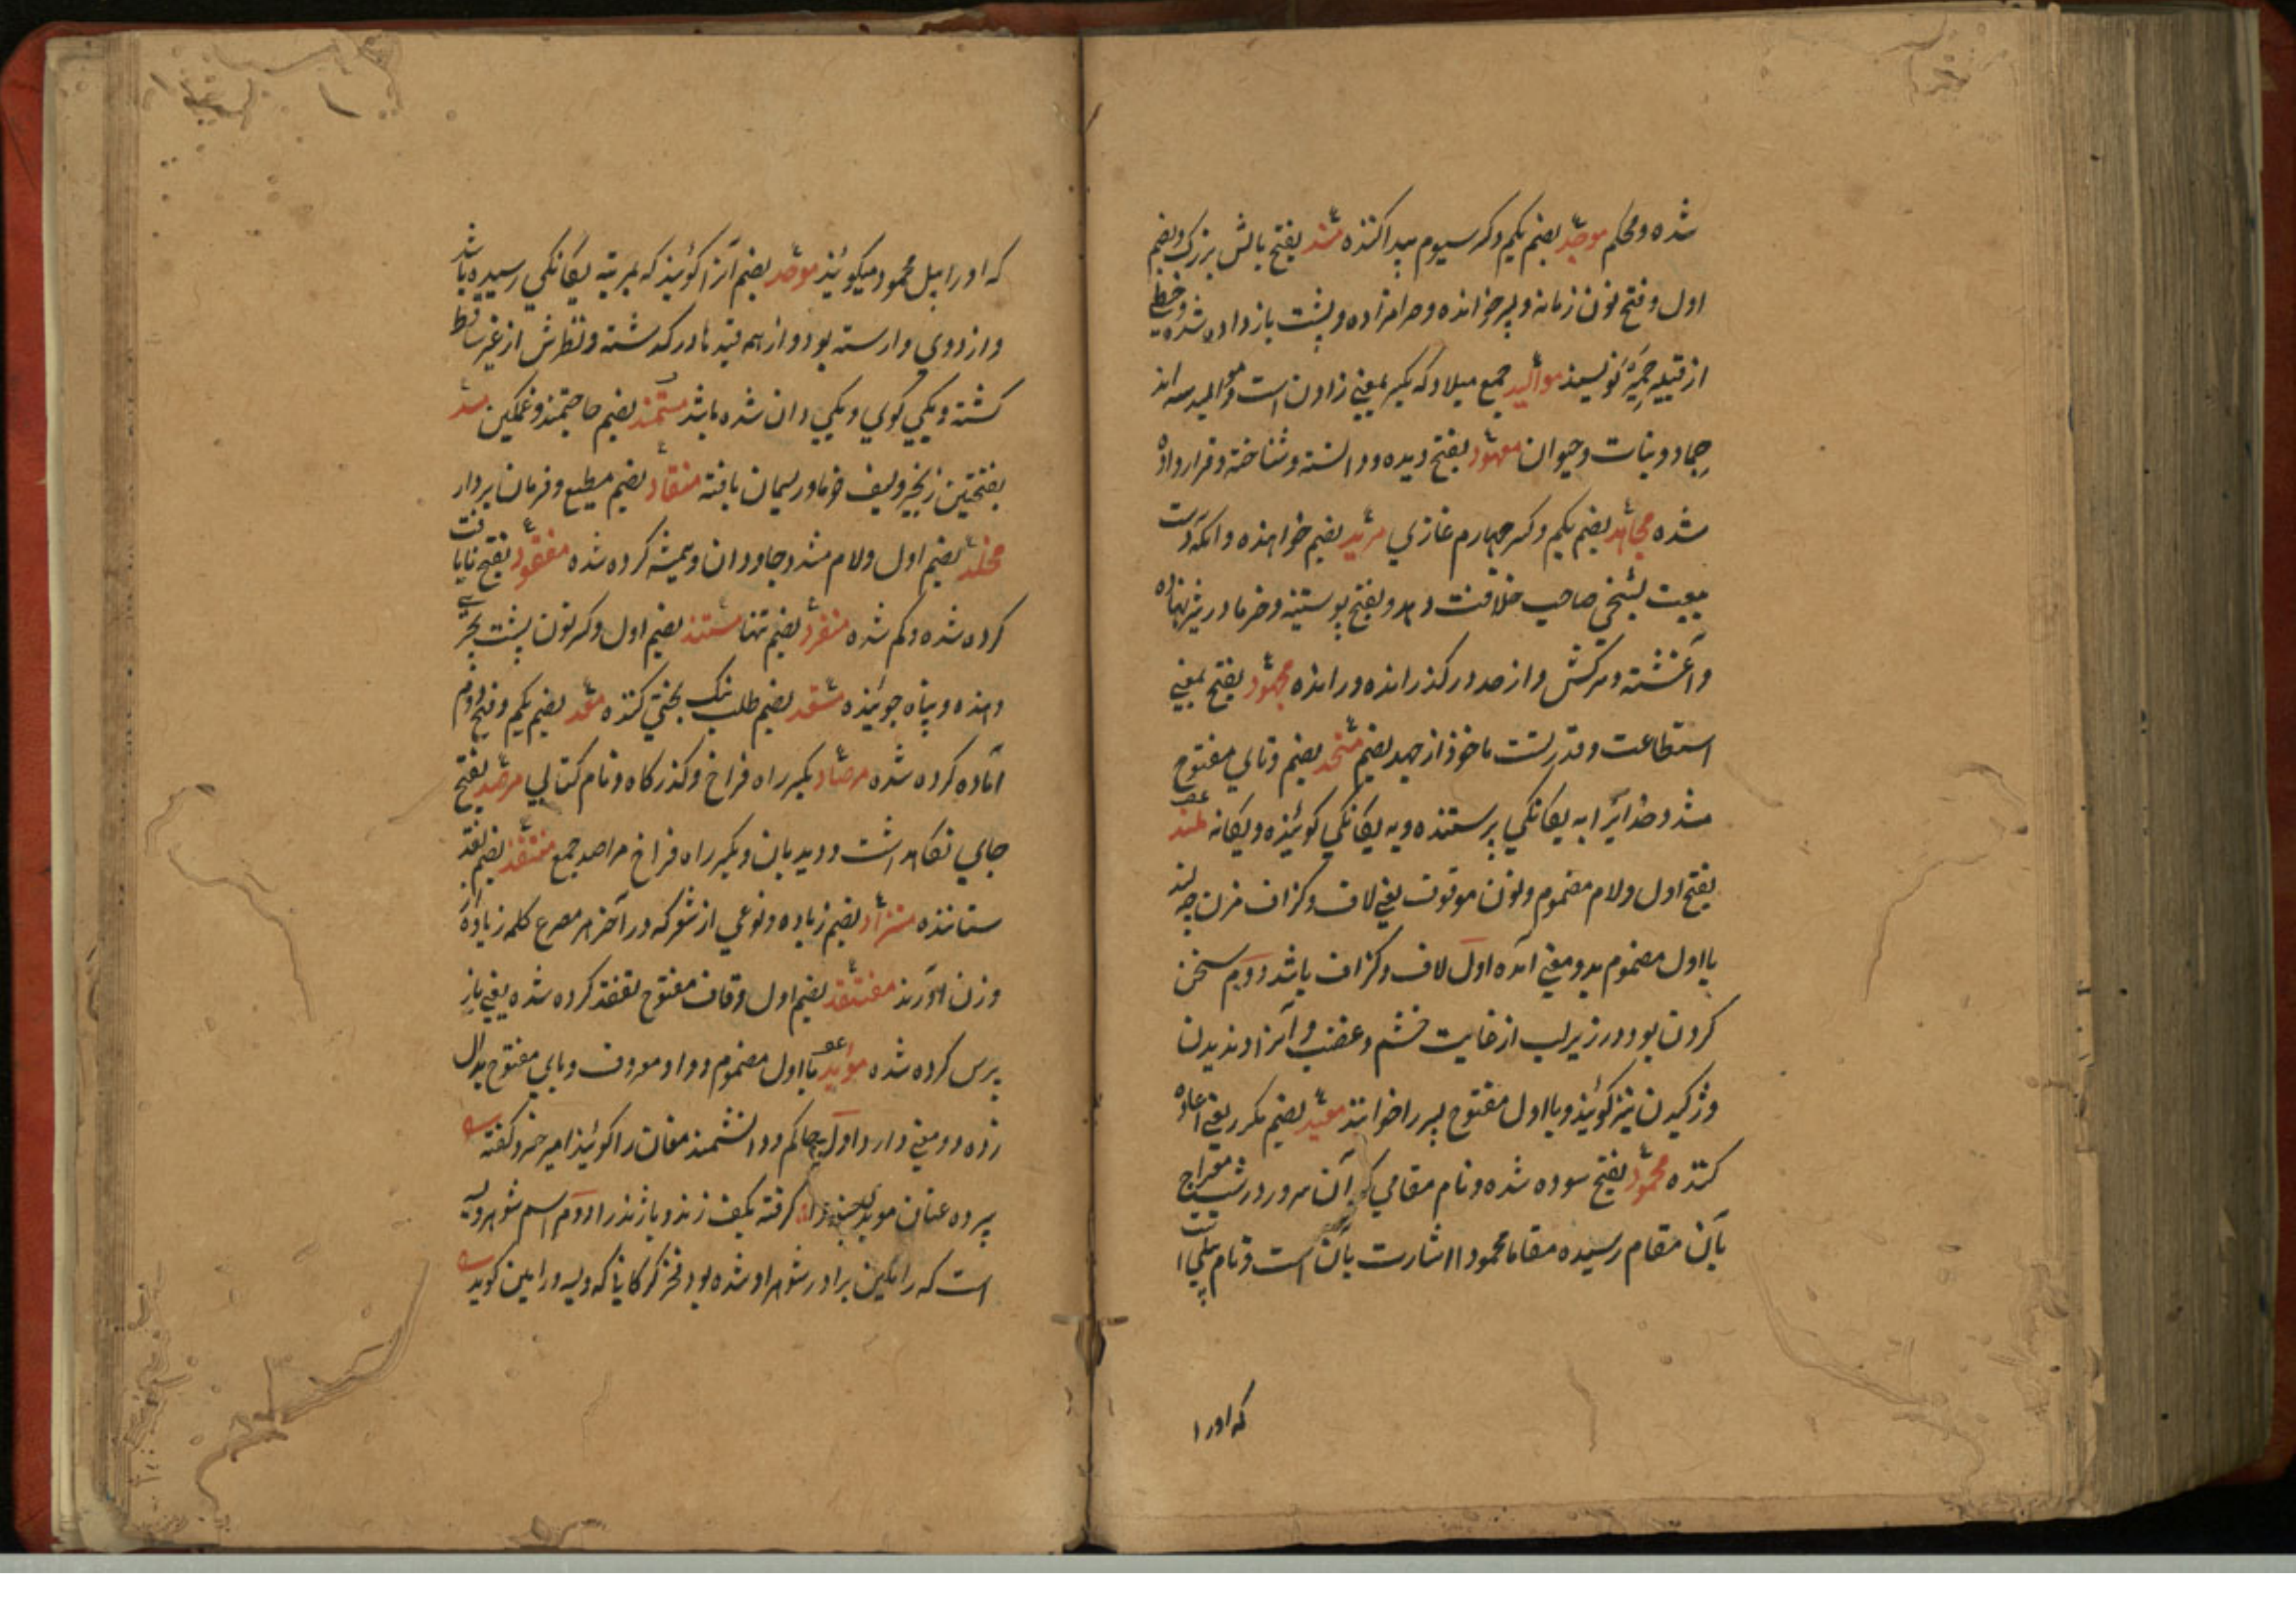 شده و محکم موجد بضم یکم و کسر سیوم پیدا کننده مسند بفتح بالش بزرک و بضم
اول و فتح نون زمانه و پسر خوانده و حرامزاده و پشت باز داده شده و خطی
از قبیله حمیر نویسند موالید جمع میلاد که بکسر بمعنی زادن است و موالید سه اند
جماد و نبات و حیوان معهود بفتح دیده و دانسته و شناخته و قرار داده
شده مجاهد بضم یکم و کسر چهارم غازی مرید بضم خواهنده و آنکه دست
بیعت بشیخی صاحب خلافت دهد و بفتح پوستینه و خرما در شیر نهاده
و آغشته و سرکش و از حد در کذرانده و رانده مجهود بفتح بمعنی
استطاعت و قدرتست ماخوذ از جهد بضم متحد بضم و تای مفتوح
مشدد خدایرا به یکانکی پرستنده و به یکانکی کوینده و یکانه لمند
بفتح اول و لام مضموم و نون موقوف یعنی لاف و کزاف مزن چه لند
با اول مضموم بدو معنی آمده اول لاف و کزاف باشد دوم سخن
کردن بود در زیر لب از غایت خشم و غضب و آنرا دندیدن
و ژکیدن نیز کویند و با اول مفتوح پسر را خوانند معید بضم مکرر یعنی اعاده
کننده محمود بفتح ستوده شده و نام مقامی که آن سرور در شب معراج
بآن مقام رسیده مقاما محمودا اشارت بآن است و نام پیلی است
که او را
که او را پیل محمود میکویند موحد بضم آنرا کویند که بمرتبه یکانکی رسیده باشد
و از دوی وارسته بود و از همه قیدها در کذشته و نظرش از غیر ساقط
کشته و یکی کوی و یکی دان شده باشد مستمند بضم حاجتمند و غمکین مسد
بفتحتین زنجیر و لیف خرما و ریسمان بافته منقاد بضم مطیع و فرمان بردار
مخلد بضم اول و لام مشدد جاودان و همیشه کرده شده مفقود بفتح نایافت
کرده شده و کم شده منفرد بضم تنها مستند بضم اول و کسر نون پشت بچیزی
دهنده و پناه جوینده مستسعد بضم طلب نیک بختی کننده معد بضم یکم و فتح دوم
آماده کرده شده مرصاد بکسر راه فراخ و کذرکاه و نام کتابی مرصد بفتح
جای نکاهداشت و دیدبان و بکسر راه فراخ مراصد جمع منتقد بضم نقد
ستاننده مستزاد بضم زیاده و نوعی از شعر که در آخر هر مصرع کلمه زیاده از
وزن آورند مفتقد بضم اول و قاف مفتوح تفقد کرده شده یعنی باز
پرس کرده شده موبد با اول مضموم و واو معروف و بای مفتوح بدال
زده دو معنی دارد اول حاکم و دانشمند مغان را کویند امیر خسرو کفته
پیر ده عنان موبد کرفته بکف زند و باژند را دوم اسم شوهر ویسه
است که رامین برادر شوهر او شده بود فخر کرکانی که ویسه و رامین کوید